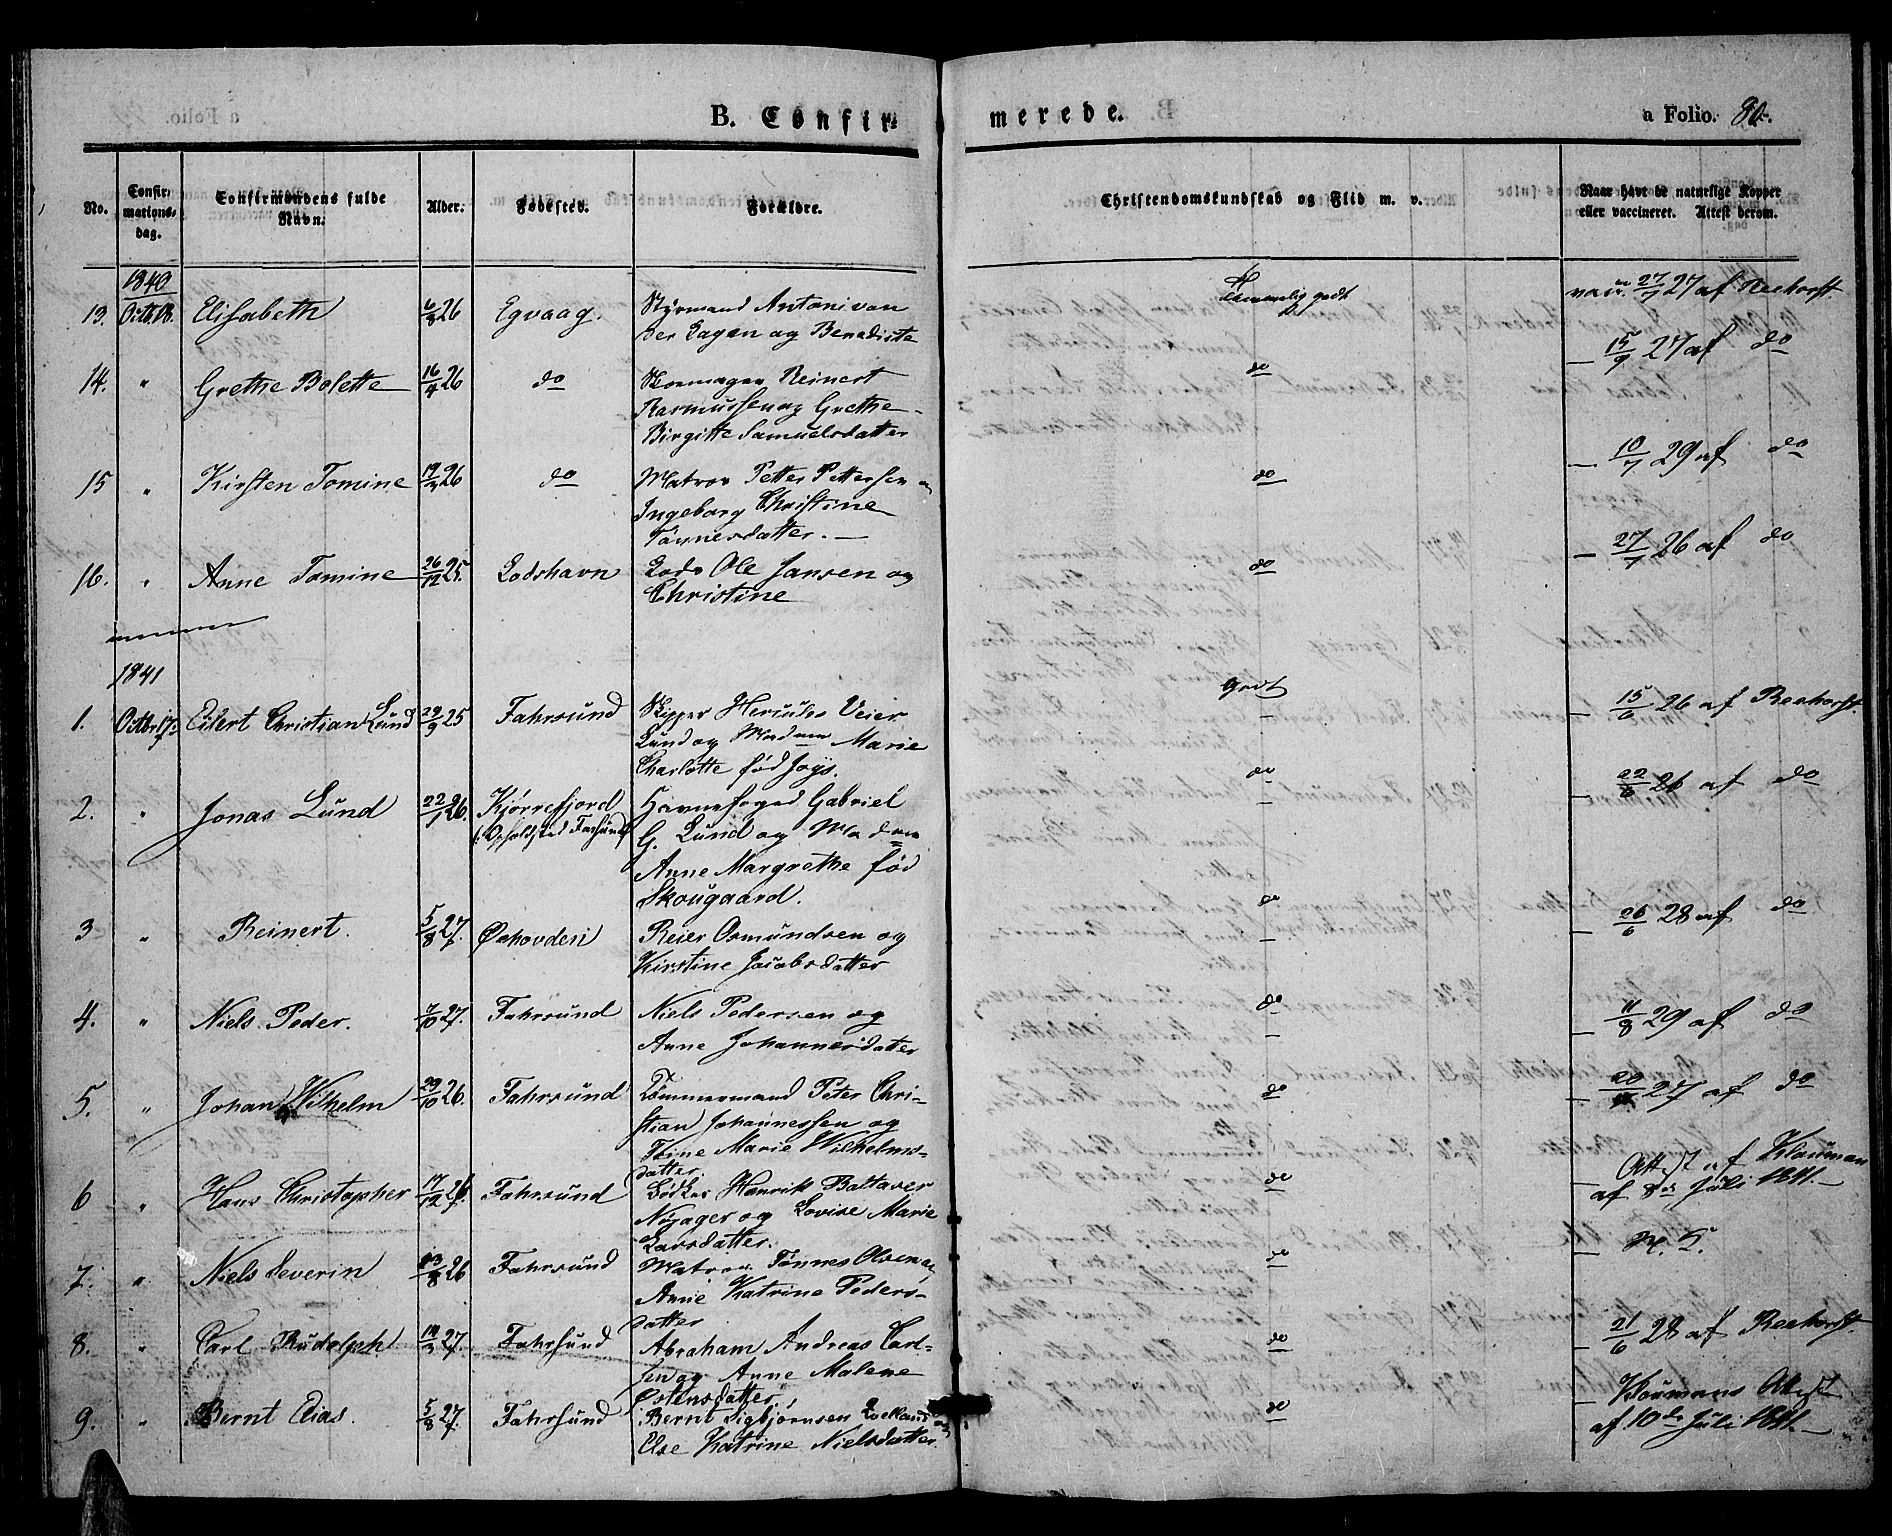 B. Confir-
merede.
a Folio. 86.
No.
Confir-
mations-
dag.
Confirmandens fulde
Navn.
Alder.
Fødested.
Forældre.
Christendomskundskab og Flid m. v.
Naar havt de naturlige Kopper
eller vaccineret. Attest derom.
1840
13. Octb. 18. Elisabeth 6/8 26 Egvaag. Styrmand Antoni van
der Lagen og Benedicte
Temmelig godt
vacc. 27/7 27 af Reehorst
14. " Grethe Bolette 16/4 26 do Reinert
Rasmussen og Grethe
Birgitte Samuelsdatter
do
— 15/9 27 af do
15 " Kirsten Tomine 19/3 26 do Matros Petter Pettersen og
Ingeborg Christine
Tønnesdatter. —
do
— 10/7 29 af do
16. " Anne Tomine 26/12 25. Lodshavn Lods Ole Jansen og
Christine
do
— 27/7 26 af do
1841
1. Octbr 17de Eilert Christian Lund 29/9 25 Fahrsund Skipper Hercules Veier
Lund og Madam Marie
Charlotte fød Joys.
godt
— 15/6 26 af Reehorst.
2. " Jonas Lund 22/1 26. Kjørrefjord
(: Opholdsted Farsund)
Havnefoged Gabriel
G. Lund og Madam
Anne Margrethe fød
Skougaard.
do
— 22/6 26 af do
3 " Reinert. 5/8 27. Øihovden Reier Osmundsen og
Kirstine Jacobsdatter
do
— 26/6 28 af do
4. " Niels Peder. 7/10 27. Fahrsund Niels Pedersen og
Anne Johannesdatter
do
— 11/8 29 af do
5. " Johan Wilhelm 29/10 26. Fahrsund Tømmermand Peter Chri-
stian Johannessen og
Trine Marie Wilhelms-
datter.
do
— 20/ 27 af do
6 " Hans Christopher 17/12 26. Fahrsund Bødker Henrik Baltaser
Nøjager og Lovise Marie
Larsdatter.
do
— Attest af Klouman
af 8de Juli 1841. —
7. " Niels Severin 13/8 26 Fahrsund Matros Tønnes Olsen og
Anne Katrine Peders-
datter
do
—
8. " Carl Rudolph 14/3 27. Fahrsund Abraham Andreas Carl-
sen og Anne Malene
Østensdatter
do
— 21/6 28 af Reehorst.
9. " Bernt Elias. 5/8 27. Fahrsund Bernt Sigbjørnsen
Else Katrine Nielsdatter.
do
— Kloumans Attest
af 10de Juli 1841. —